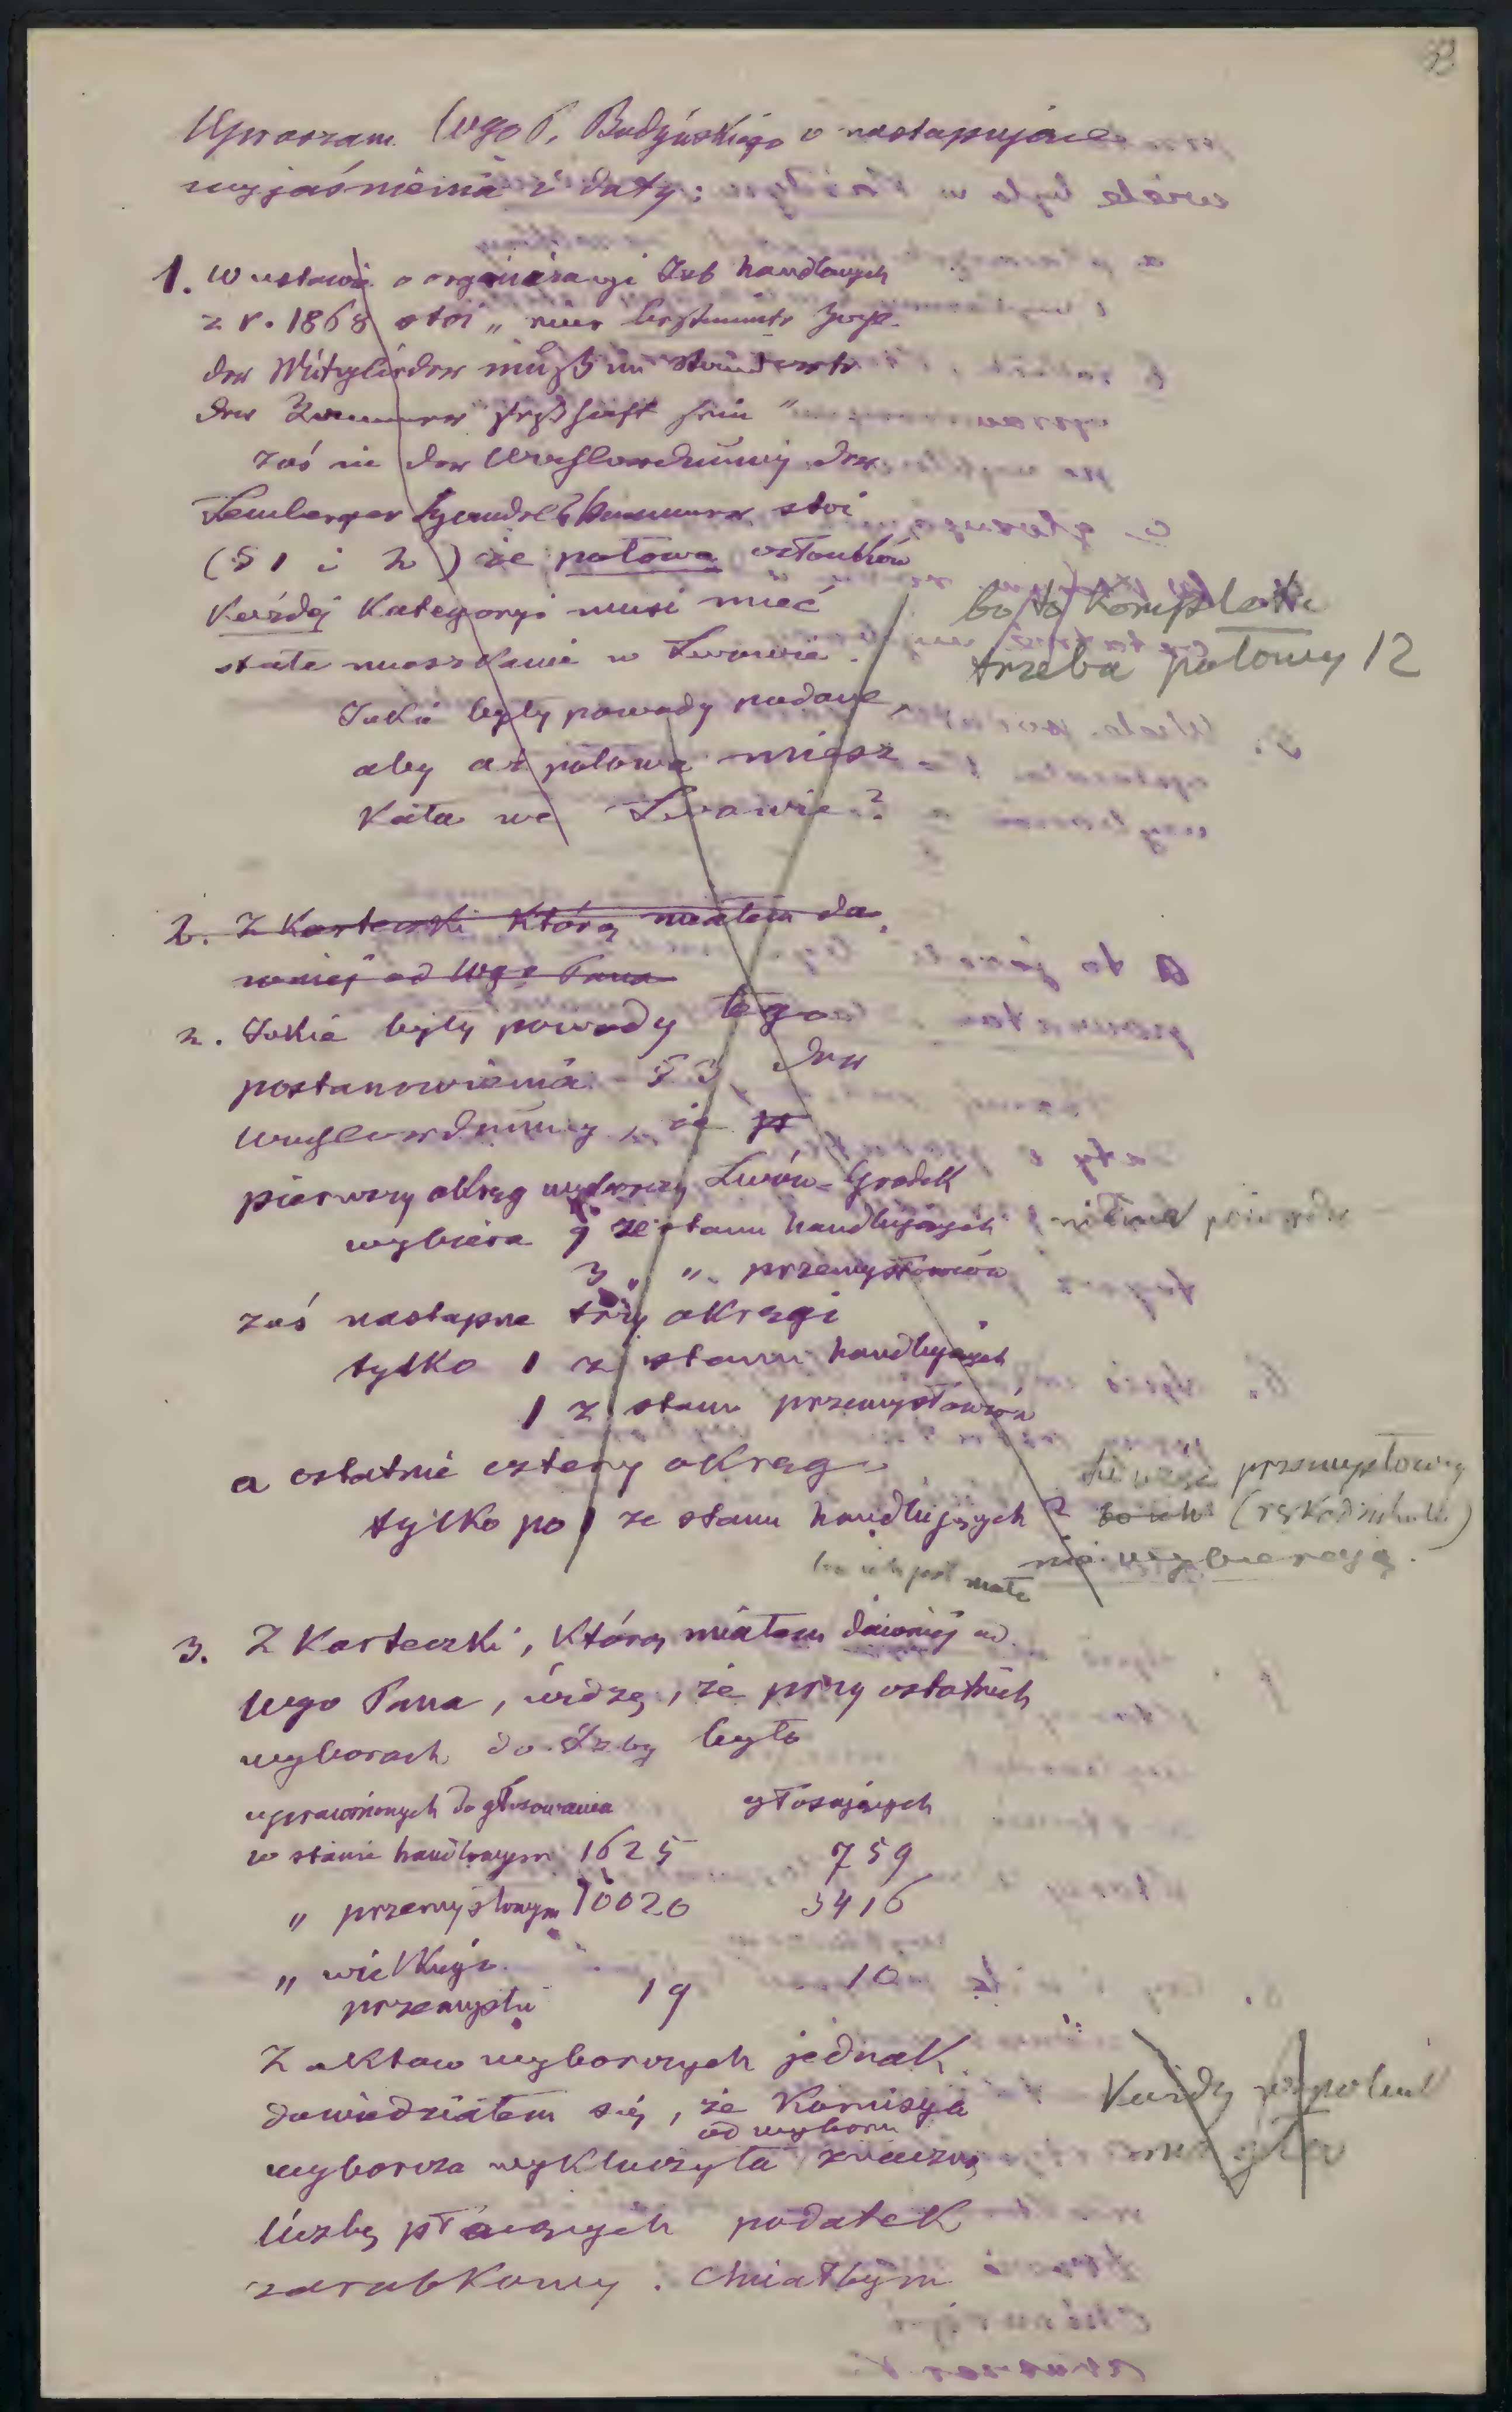 Upraszam Wgo P. Budyńskiego o następujące
wyjaśnienia i daty:
1. W ustawie o organizacyi Izb handlowych
z r. 1868 stoi „ eine bestimmte
der Mitglieder muß im Standorte
der Kammer seßhaft sein "
zaś in der Wahlordnung der
Lemberger Handelskammer stoi
(§ 1 i 2) że połowa członków
każdej kategoryi musi mieć
stałe mieszkanie w Lwowie.
bo to komplett
trzeba połowy 12
Jakie były powody podane,
aby aż połowa miesz
kała we Lwowie?
2. Z Karteczki którą miałem da
wniej od Wgo Pana
2. Jakie były powody tego
postanowienia § 3 der
Wahlordnung, że
pierwszy okręg wyborczy Lwów-Gródek
wybiera 9 ze stanu handlujących
3 „ „ przemysłowców
zaś następne trzy okręgi
tylko 1 z stanu handlujących
1 z stanu przemysłowców
a ostatnie cztery okręgi
tylko po 1 ze stanu handlujących ?
przemysłowcy
bo ich
nie wybierają.
bo ich jest mało
3. Z Karteczki, którą miałem dawniej od
Wgo Pana, widzę, że przy ostatnich
wyborach do Izby było
uprawnionych do głosowania głosujących
w stanie handlowym 1625 759
„ przemysłowym 10020 3416
„ wielkiego
przemysłu 19 10
Z aktów wyborczych jednak
dowiedziałem się, że Komisya
od wyboru
wyborcza wykluczyła znaczną
liczbę płacących podatek
zarobkowy. Chciałbym
Każdy